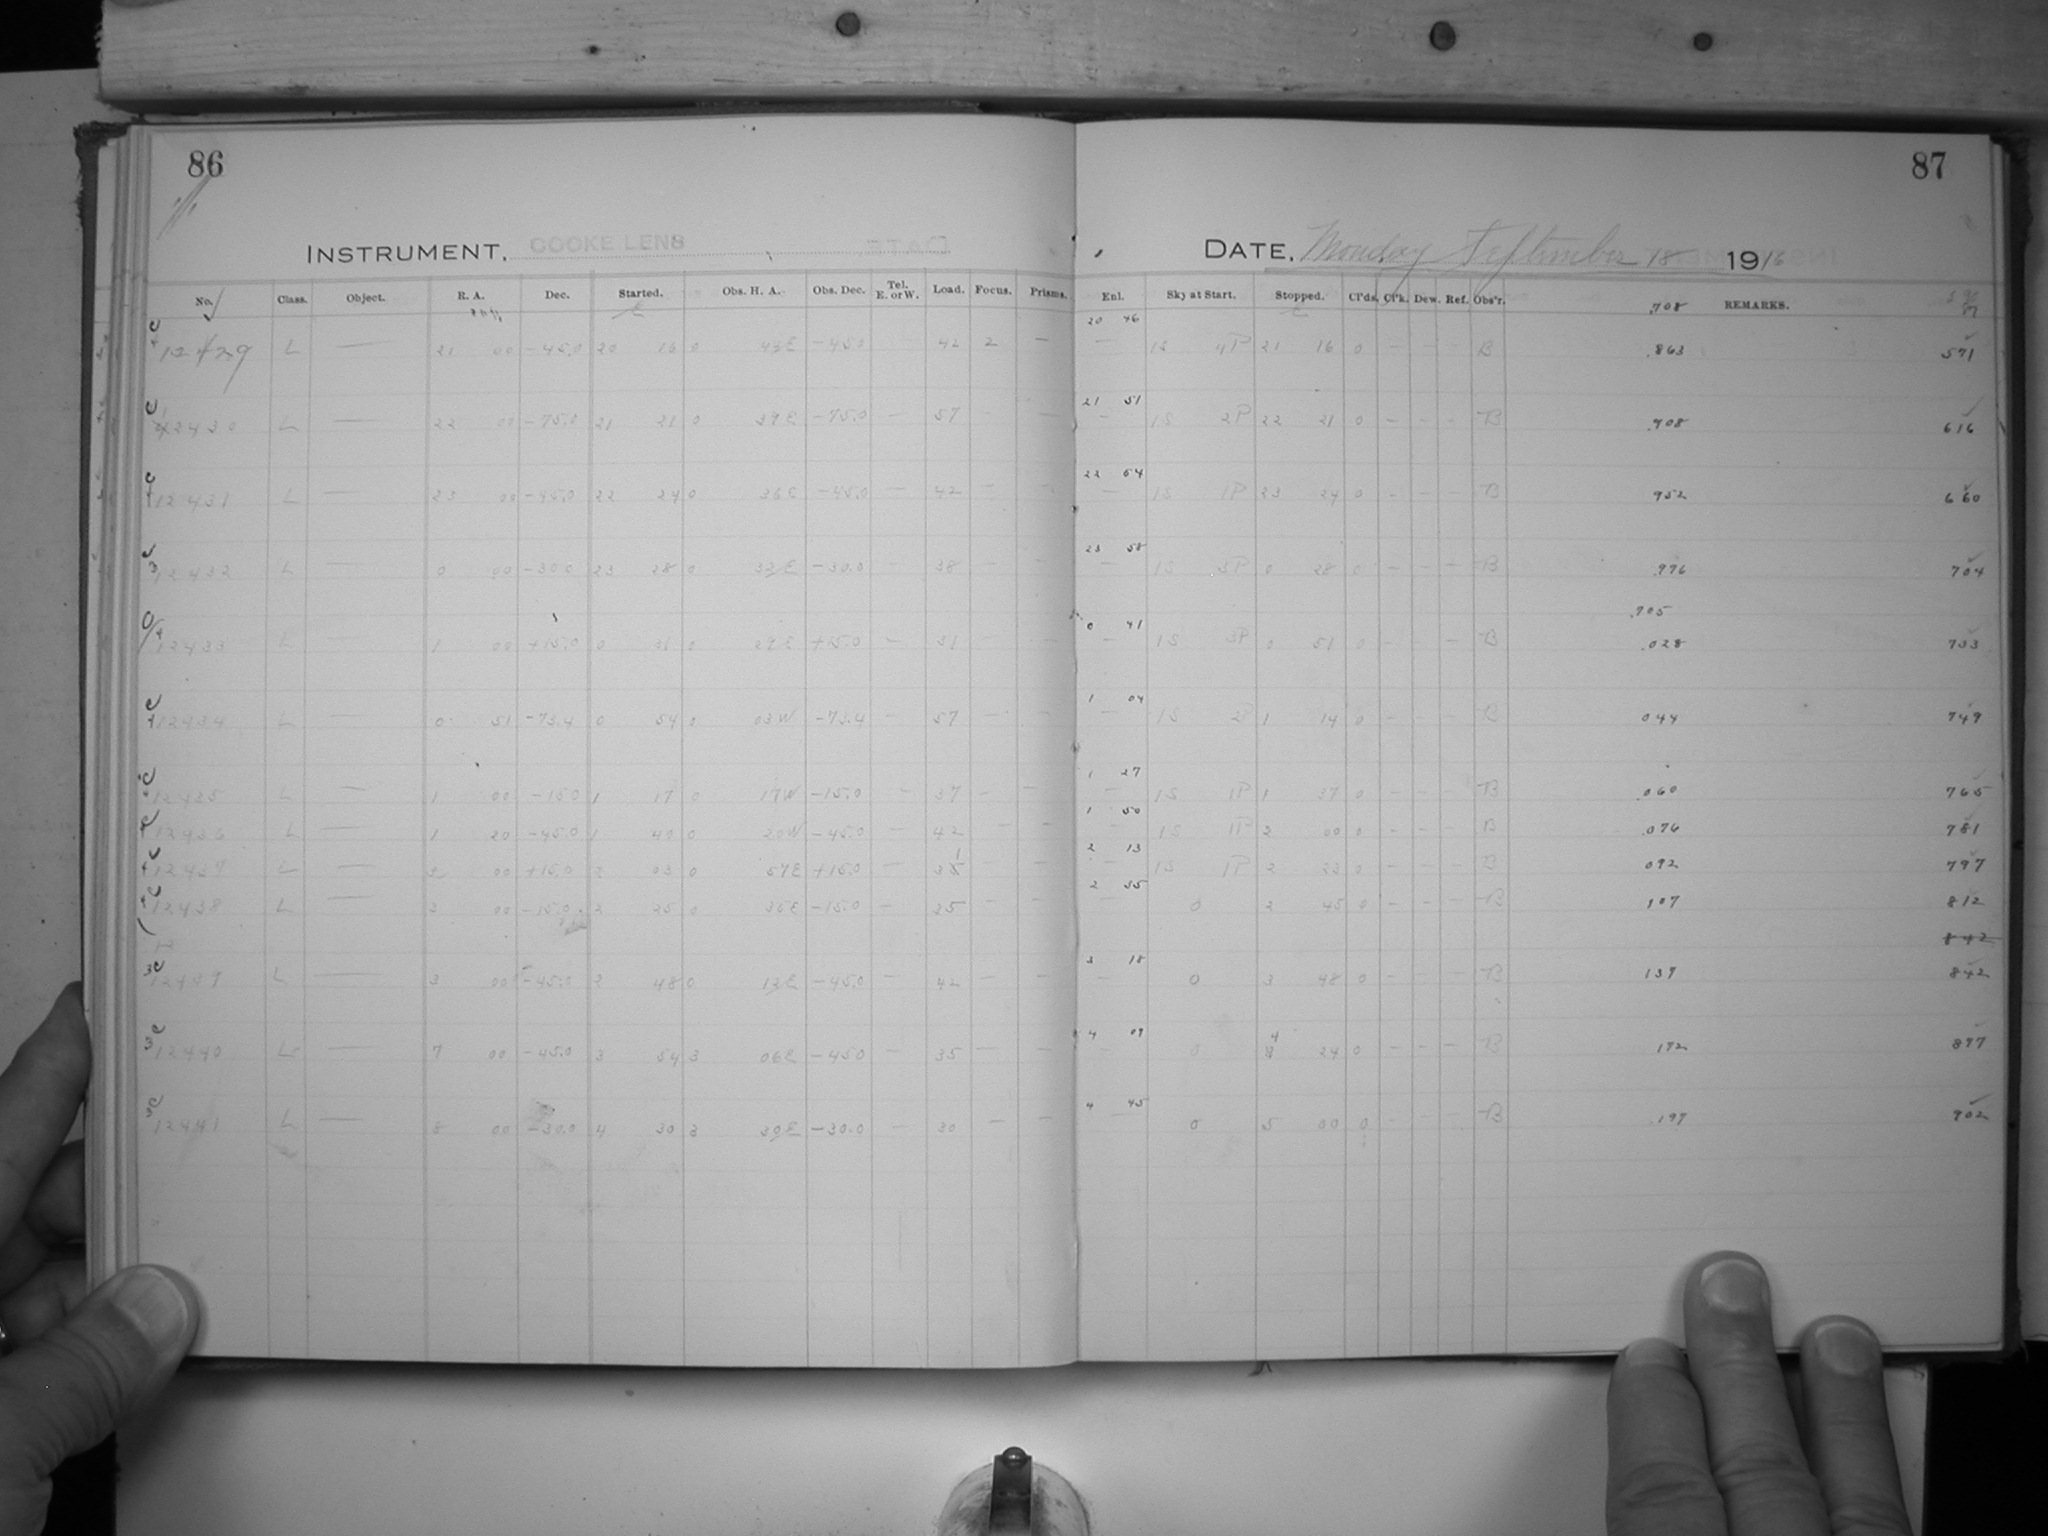 86
87
INSTRUMENT, COOKE LENS
DATE, Monday September 18 1916
No. Class. Object. R. A. Dec. Started. Obs. H. A. Obs. Dec. Tel. E. or W. Load. Focus. Prisms. Enl. Sky at Start. Stopped. Cl'ds. Cl'k. Dew. Ref. Obs'r. REMARKS.
.708
20 46
12429 L — 21 00 -45.0 20 16 0 43E -45.0 42 2 — — 1S 4P 21 16 0 - - - B .863 571
21 51
12430 L — 22 00 -75.0 21 21 0 39E -75.0 — 57 — - 1S 2P 22 21 0 - - - B .908 616
22 54
12431 L — 23 00 -45.0 22 24 0 36E -45.0 — 42 - - — 1S 1P 23 24 0 - - - B 952 660
23 58
12432 L — 0 00 -30.0 23 28 0 32E -30.0 — 38 - - — 1S 0 28 0 - - - B .996 704
.705
0 41
12433 L 1 00 +15.0 0 31 0 29E +15.0 — 31 - - — 1S 0 51 0 - - - B .028 733
1 04
12434 L — 0 51 -73.4 0 54 0 03W -73.4 - 57 - - — 1S 2P 1 14 0 - - - B 044 749
1 27
12435 L — 1 00 -15.0 1 17 0 17W -15.0 - 37 - - — 1S 1P 1 37 0 - - - B .060 765
1 50
12436 L — 1 20 -45.0 1 40 0 20W -45.0 - 42 - - — 1S 1P 2 00 0 - - - B .076 781
2 13
12437 L — 3 00 +15.0 2 03 0 57E +15.0 — 31 - - — 1S 1P 2 23 0 - - - B 092 797
2 35
12438 L — 3 00 -15.0 2 25 0 35E -15.0 — 35 - - — 0 2 45 0 - - - B 107 812
842
3 18
L — 3 00 -45.0 2 48 0 12E -45.0 — 42 - - — 0 3 48 0 - - - B 137 842
4 09
12440 L — 7 00 -45.0 3 54 3 06E -45.0 — 35 - - 0 4 24 0 - - - B .172 877
4 45
12441 L — 8 00 -30.0 4 30 3 30E -30.0 — 30 - - — 0 5 00 0 - - - B .197 902